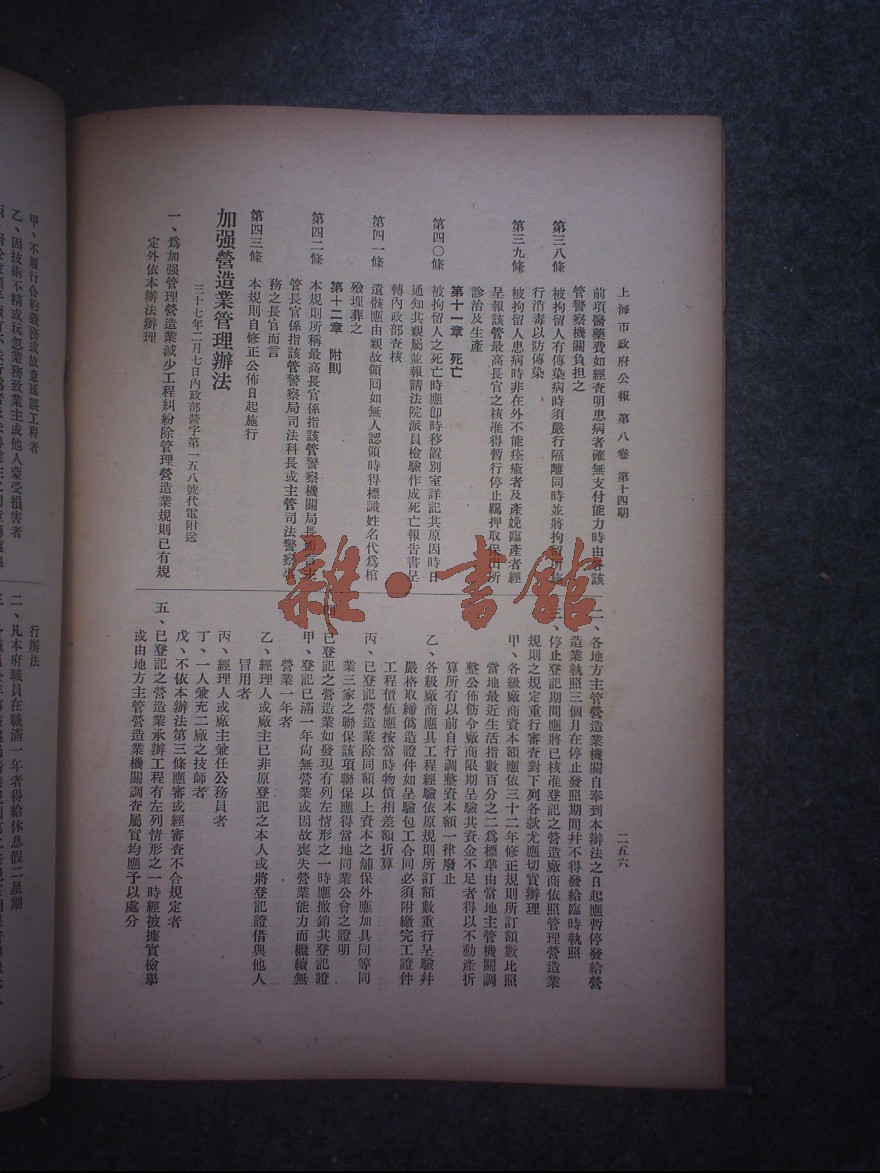 上海市政府公報　第八卷　第十四期
二五六
前項醫藥費如經查明患病者確無支付能力時由 該
管警察機關負担之
第三八條　被拘留人有傳染病時須嚴行隔離同時並將拘留所 
行消毒以防傳染
第三九條　被拘留人患病時非在外不能痊癒者及產娩臨產者經
呈報該管最高長官之核准得暫行停止羈押取保出所
診治及生產
第十一章　死亡
第四〇條　被拘留人之死亡時應卽時移置別室詳記其原因時日
通知其親屬並報請法院派員檢驗作成死亡報告書呈
轉內政部查核
第四一條　遺骸應由親故領回如無人認領時得標識姓名代爲棺
殮埋葬之
第十二章　附則
第四二條　本規則所稱最高長官係指該管警察機關局長而言主
管長官係指該管警察局司法科長或主管司法警察事
務之長官而言
第四三條　本規則自修正公佈日起施行
加强營造業管理辦法
三十七年二月七日內政部營字第一五八號代電附送
一、爲加强管理營造業減少工程糾紛除管理營造業規則已有規
定外依本辦法辦理
二、各地方主管營造業機關自奉到本辦法之日起應暫停發給營
造業執照三個月在停止發照期間幷不得發給臨時執照
三、停止登記期間應將已核准登記之營造廠商依照管理營造業
規則之規定重行審查對下列各款尤應切實辦理
甲、各級廠商資本額應依三十二年修正規則所訂額數比照
當地最近生活指數百分之二爲標準由當地主管機關調
整公佈飭令廠商限期呈驗其資金不足者得以不動產折
算所有以前自行調整資本額一律廢止
乙、各級廠商應具工程經驗依原規則所訂額數重行呈驗幷
嚴格取締僞造證件如呈驗包工合同必須附繳完工證件
工程價值應按當時物價相差額折算
丙、已登記營造業除同額以上資本之舖保外應加具同等同
業三家之聯保該項聯保應得當地同業公會之證明
四、已登記之營造業如發現有列左情形之一時應撤銷其登記證
甲、登記已滿一年尙無營業或因故喪失營業能力而繼續無
營業一年者
乙、經理人或廠主已非原登記之本人或將登記證借與他人
冒用者
丙、經理人或廠主兼任公務員者
丁、一人兼充二廠之技師者
戊、不依本辦法第三條應審或經審查不合規定者
五、已登記之營造業承辦工程有左列情形之一時經被據實檢舉
或由地方主管營造業機關調查屬實均應予以處分
甲、不履行合約義務或故意延誤工程者
乙、因技術不精或玩忽業務致業主或他人蒙受損害者
行辦法
二、凡本府職員在職滿一年者得給休息假二星期
雜·書館